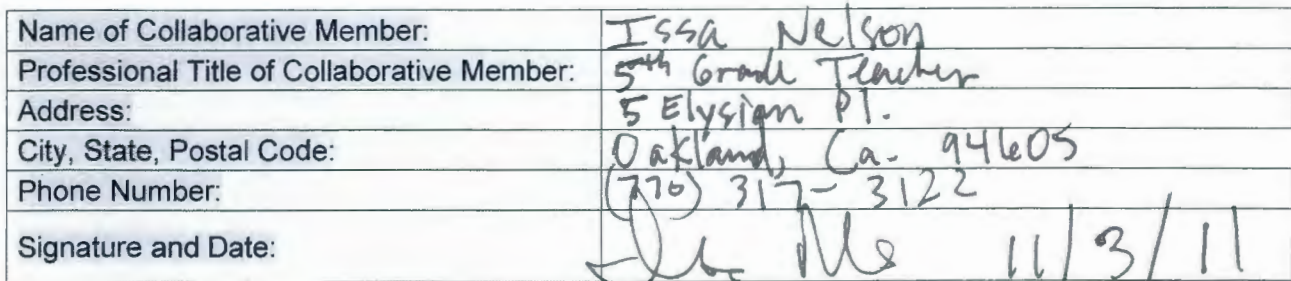 Name of Collaborative Member: Issa Nelson
Professional Title of Collaborative Member: 5th Grade Teacher
Address: 5 Elysian Pl.
City, State, Postal Code: Oakland, Ca. 94605
Phone Number: (770) 317-3122
Signature and Date: 11/3/11